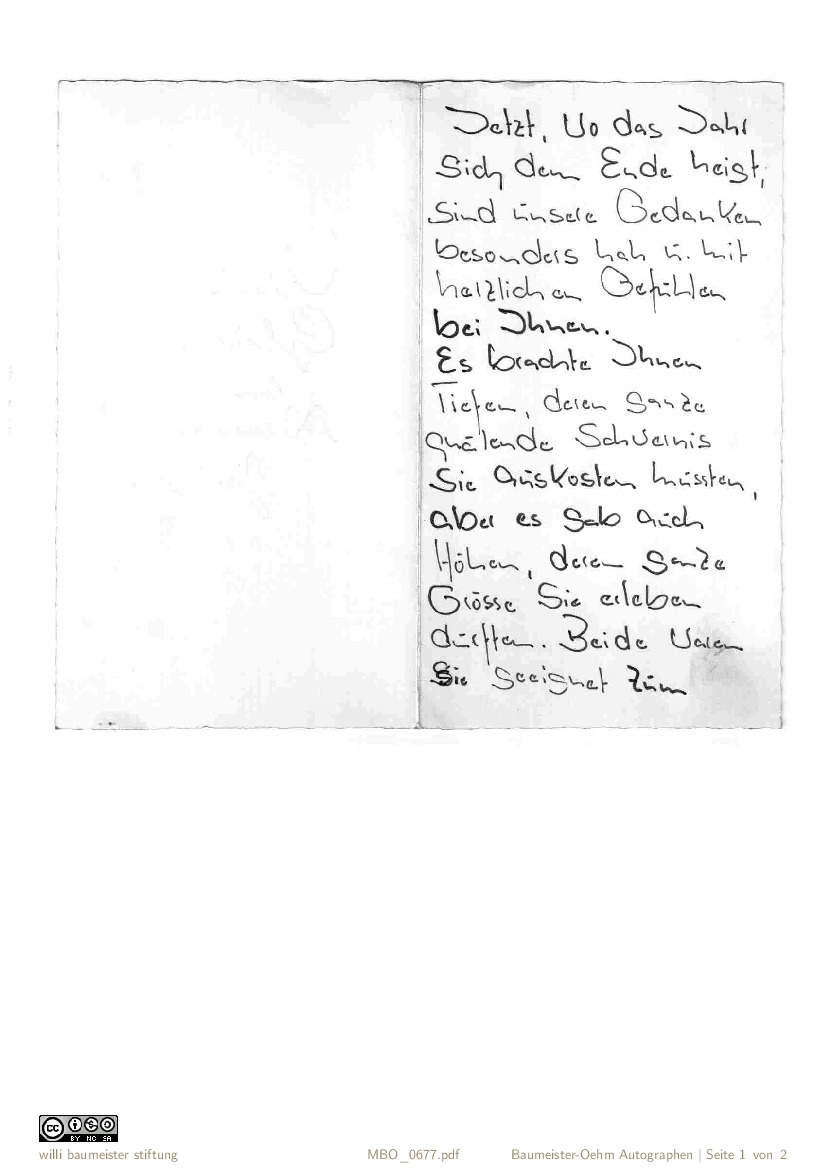 Jetzt, wo das Jahr
sich dem Ende neigt,
sind unsere Gedanken
besonders nah u. mit
herzlichen Gefühlen
bei Ihnen.
Es brachte Ihnen
Tiefen, deren ganze
quälende Schwernis
Sie auskosten mussten,
aber es gab auch
Höhen, deren ganze
Grösse Sie erleben
durften. Beide waren
Sie geeignet zum
BY NC SA
willi baumeister stiftung MBO_0677.pdf Baumeister-Oehm Autographen | Seite 1 von 2